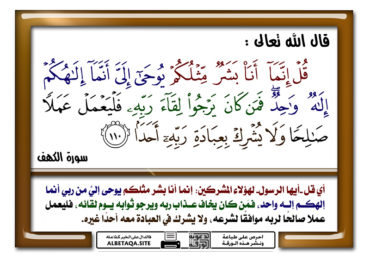 قال الله تعالى :
قُلْ إِنَّمَآ أَنَا۠ بَشَرٌ مِّثْلُكُمْ يُوحَىٰٓ إِلَىَّ أَنَّمَآ إِلَـٰهُكُمْ
إِلَـٰهٌ وَٰحِدٌ ۖ فَمَن كَانَ يَرْجُوا۟ لِقَآءَ رَبِّهِۦ فَلْيَعْمَلْ عَمَلًا
صَـٰلِحًا وَلَا يُشْرِكْ بِعِبَادَةِ رَبِّهِۦٓ أَحَدًۢا ١١٠
سورة الكهف
أي قل -أيها الرسول- لهؤلاء المشركين: إنما أنا بشر مثلكم يوحى إليَّ من ربي أنما
إلهكم إله واحد، فمن كان يخاف عذاب ربه ويرجو ثوابه يوم لقائه، فليعمل
عملا صالحًا لربه موافقًا لشرعه، ولا يشرك في العبادة معه أحدًا غيره.
احرص على طباعة
ونشر هذه الورقة
فالدال على الخير كفاعله
ALBETAQA.SITE